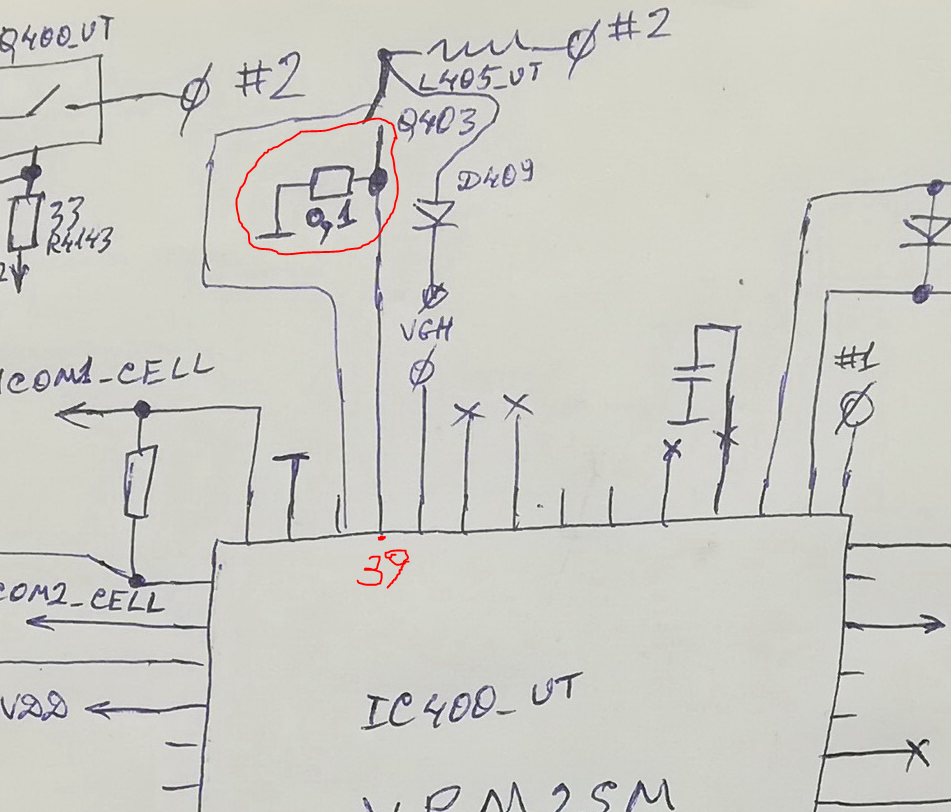 Q400_UT
#2
#2
L405_UT
Q403
D409
0,1
33
R4143
VGH
COM1_CELL
#1
39
COM2_CELL
VDD
IC400_UT